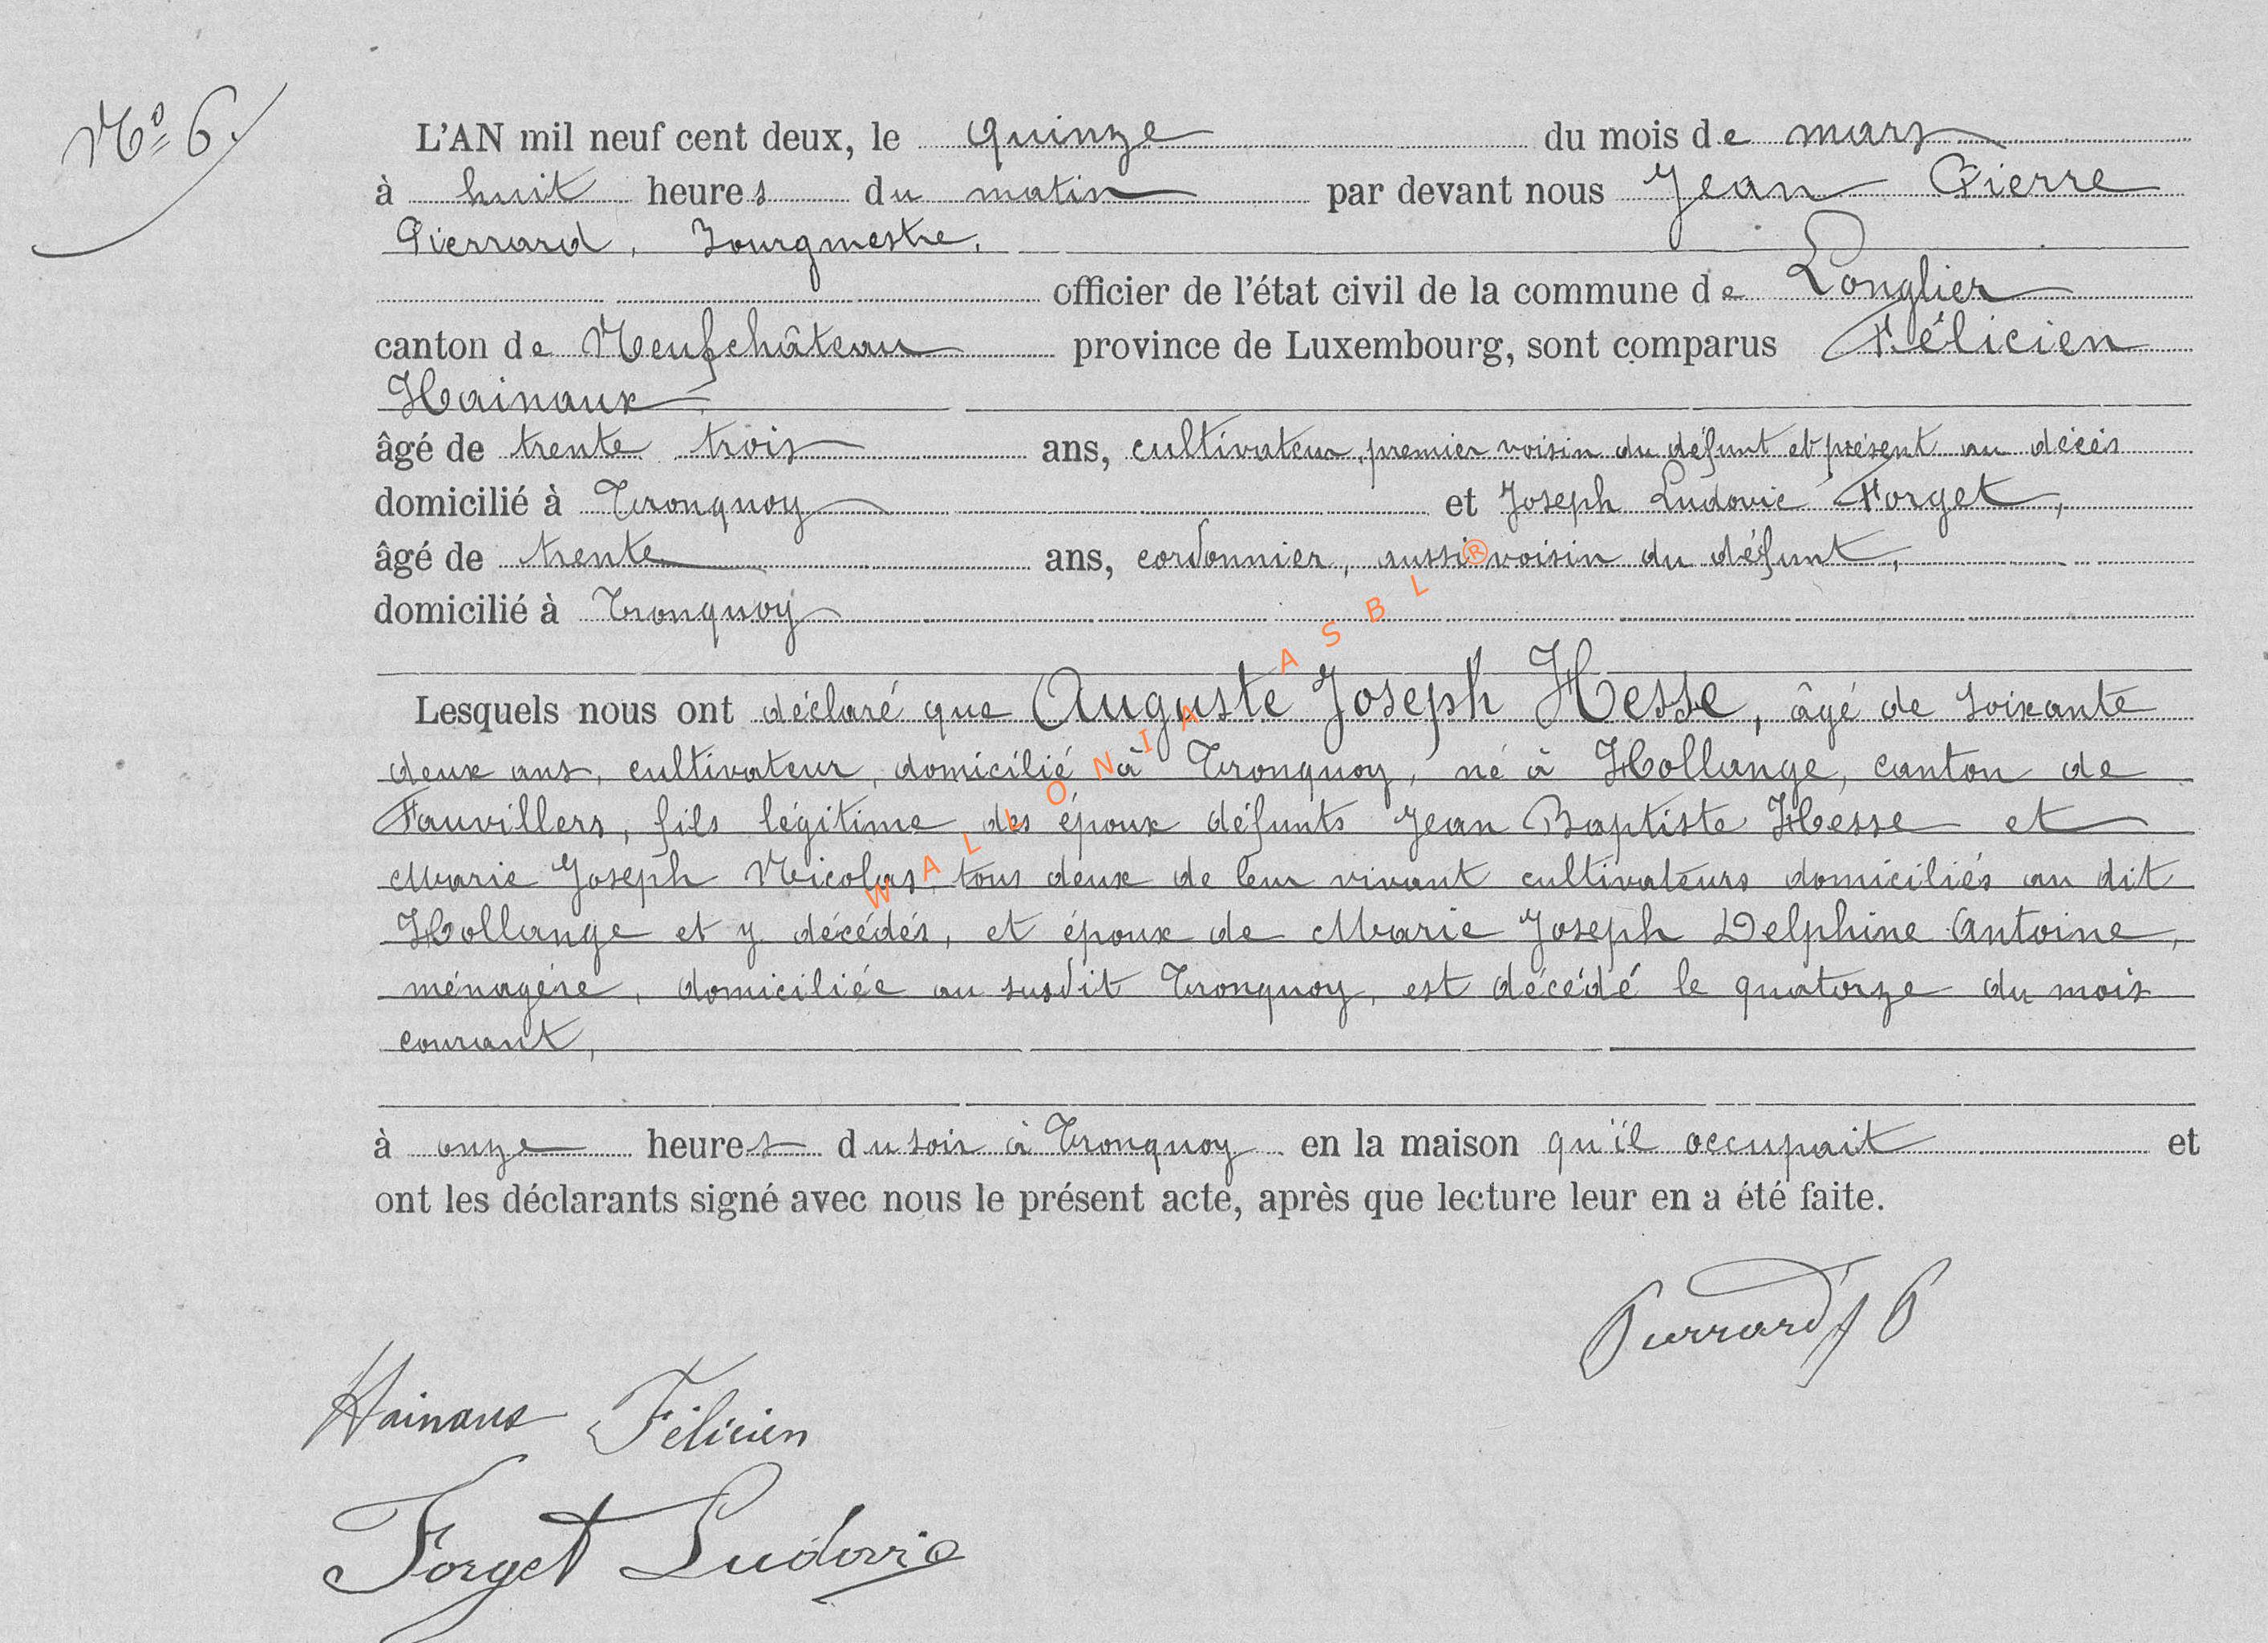 Nº 6.
L'AN mil neuf cent deux, le quinze du mois de mars
à huit heures du matin par devant nous Jean Pierre
Pierrard, Bourgmestre,
officier de l'état civil de la commune de Longlier
canton de Neufchâteau province de Luxembourg, sont comparus Félicien
Hainaux
âgé de trente trois ans, cultivateur, premier voisin du défunt et présent au décès
domicilié à Tronquoy et Joseph Ludovic Forget,
âgé de trente ans, cordonnier, aussi voisin du défunt,
domicilié à Tronquoy
Lesquels nous ont déclaré que Auguste Joseph Hesse, âgé de soixante
deux ans, cultivateur, domicilié à Tronquoy, né à Hollange, canton de
Fauvillers, fils légitime des époux défunts Jean Baptiste Hesse et
Marie Joseph Nicolas, tous deux de leur vivant cultivateurs domiciliés au dit
Hollange et y décédés, et époux de Marie Joseph Delphine Antoine,
ménagère, domiciliée au susdit Tronquoy, est décédé le quatorze du mois
courant,
à onze heures du soir à Tronquoy en la maison qu'il occupait et
ont les déclarants signé avec nous le présent acte, après que lecture leur en a été faite.
Pierrard J P
Hainaux Félicien
Forget Ludovic
WALLONIA ASBL ®